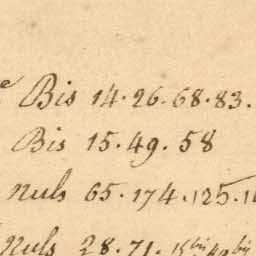 e Bis 14.26.68.83.
Bis 15.49.58
nuls 65.174.125.1
nuls 28.71.